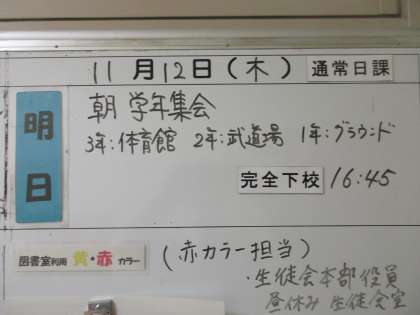 11月12日(木) 通常日課
明日
朝 学年集会
3年:体育館 2年:武道場 1年:グラウンド
完全下校 16:45
図書室利用 黄・赤 カラー (赤カラー担当)
・生徒会本部役員
昼休み 生徒会室